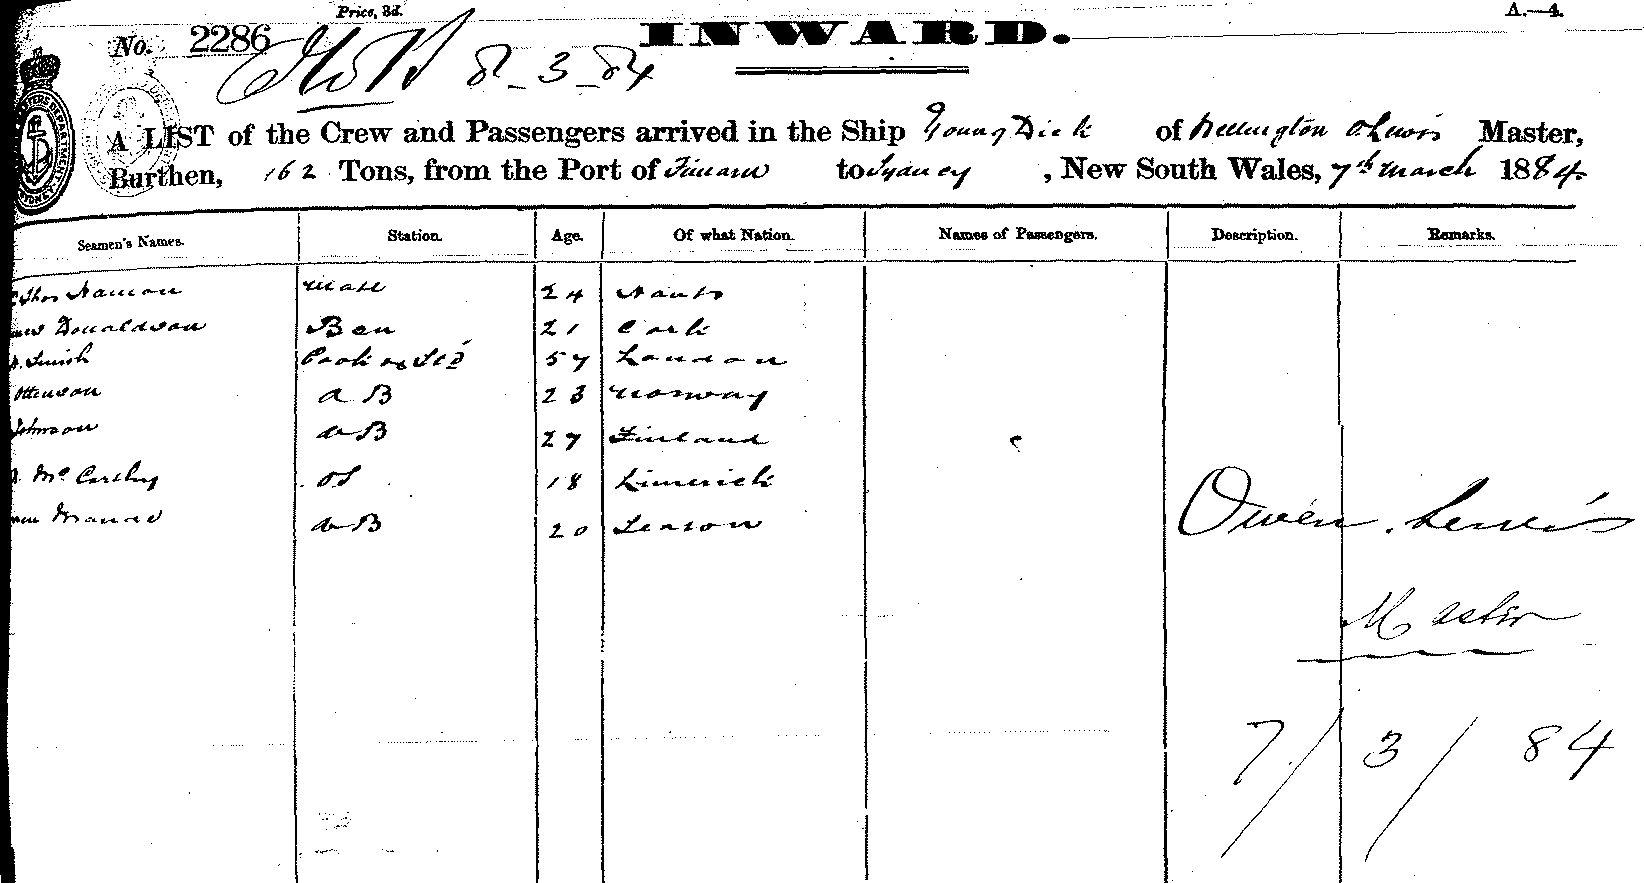 Price, 3d.
A.—4.
No. 2286
INWARD.
8-3-84
A LIST of the Crew and Passengers arrived in the Ship Young Dick of Wellington O Lewis Master,
Burthen, 162 Tons, from the Port of to Sydney, New South Wales, 7th March 1884
Seamen's Names. Station. Age. Of what Nation. Names of Passengers. Description. Remarks.
Mate 24 Nants
Donaldson Bsn 21 Cork
57 London
Ottenson AB 23 Norway
Johnson AB 27 Finland
McCarthy OS 18 Limerick
AB 20
Owen Lewis
Master
7/3/84